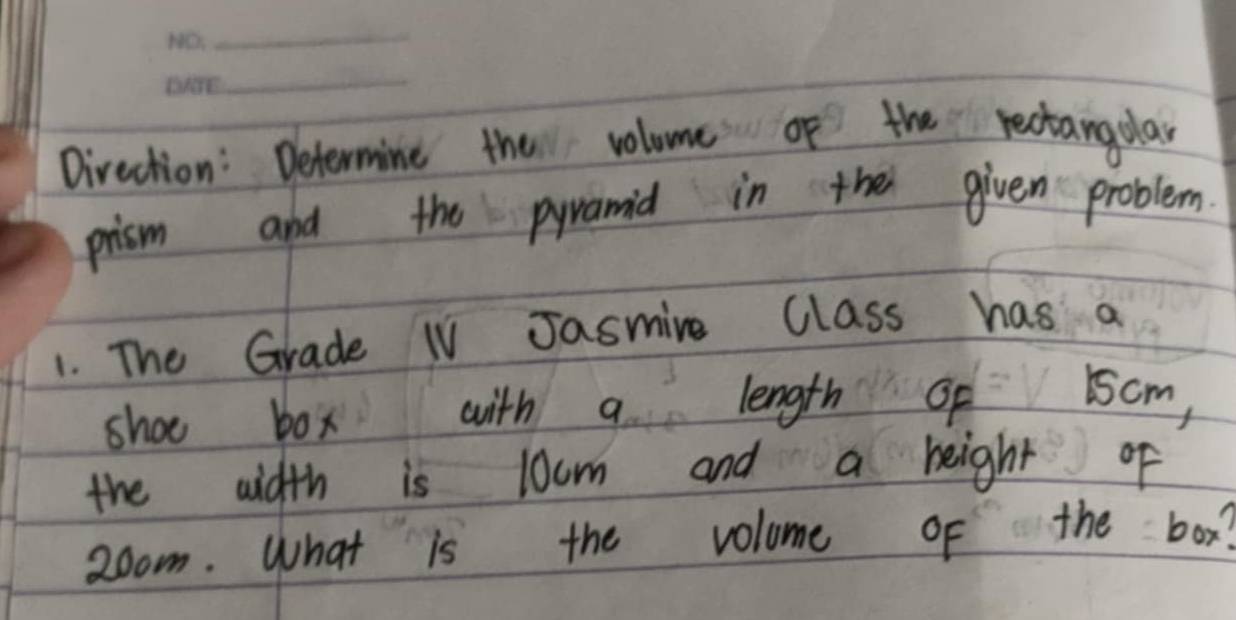 NO.
DATE
Direction: Determine the volume of the rectangular
prism and the pyramid in the given problem.
1. The Grade IV Jasmine Class has a
shoe box with a length of 15cm,
the width is 10cm and a height of
20cm. What is the volume of the box?